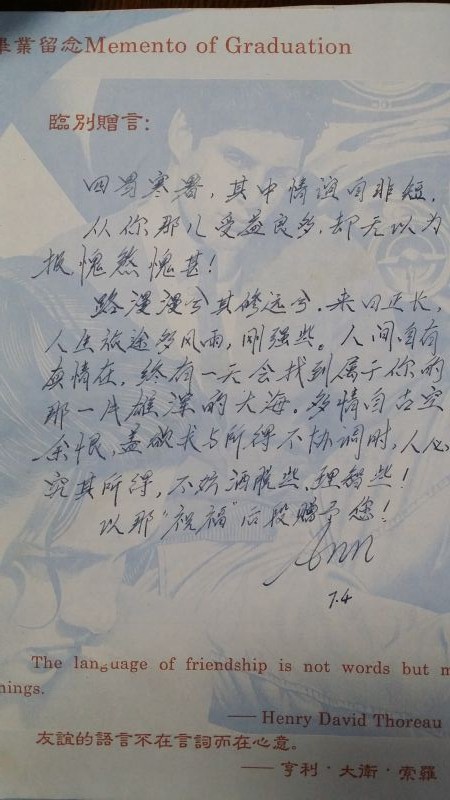 畢業留念Memento of Graduation
臨別贈言:
四易寒暑，其中情谊自非短.
从你那儿受益良多,却无以为
报愧煞愧甚!
路漫漫兮其修远兮.来日正长,
人生旅途多风雨,刚强些。人间自有
真情在,终有一天会找到属于你的
那一片雄深的大海。多情自古空
余恨,盖欲求与所得不协调时,人必
究其所得,不妨洒脱些.理智些!
以那"祝福"后段赠予您!
Ann
7.4
The language of friendship is not words but m
nings.
— Henry David Thoreau
友誼的語言不在言詞而在心意。
— 亨利·大衛·索羅